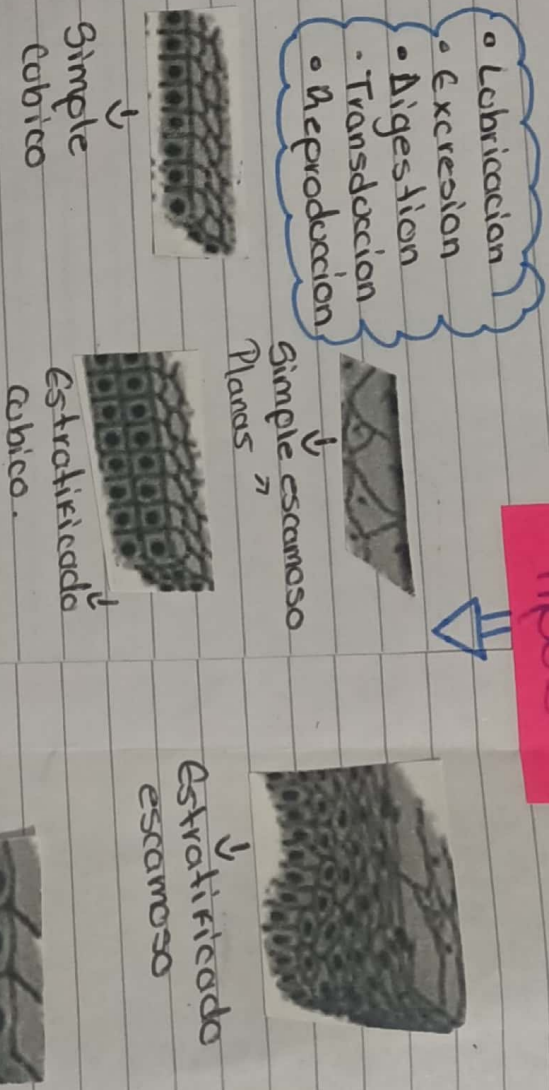 • Lobricacion
• Excresion
• Digestion
• Transduccion
• Reproduccion
Simple escamoso
Planas "
Estratificado
escamoso
Simple
Cubico
Estratificado
cubico.